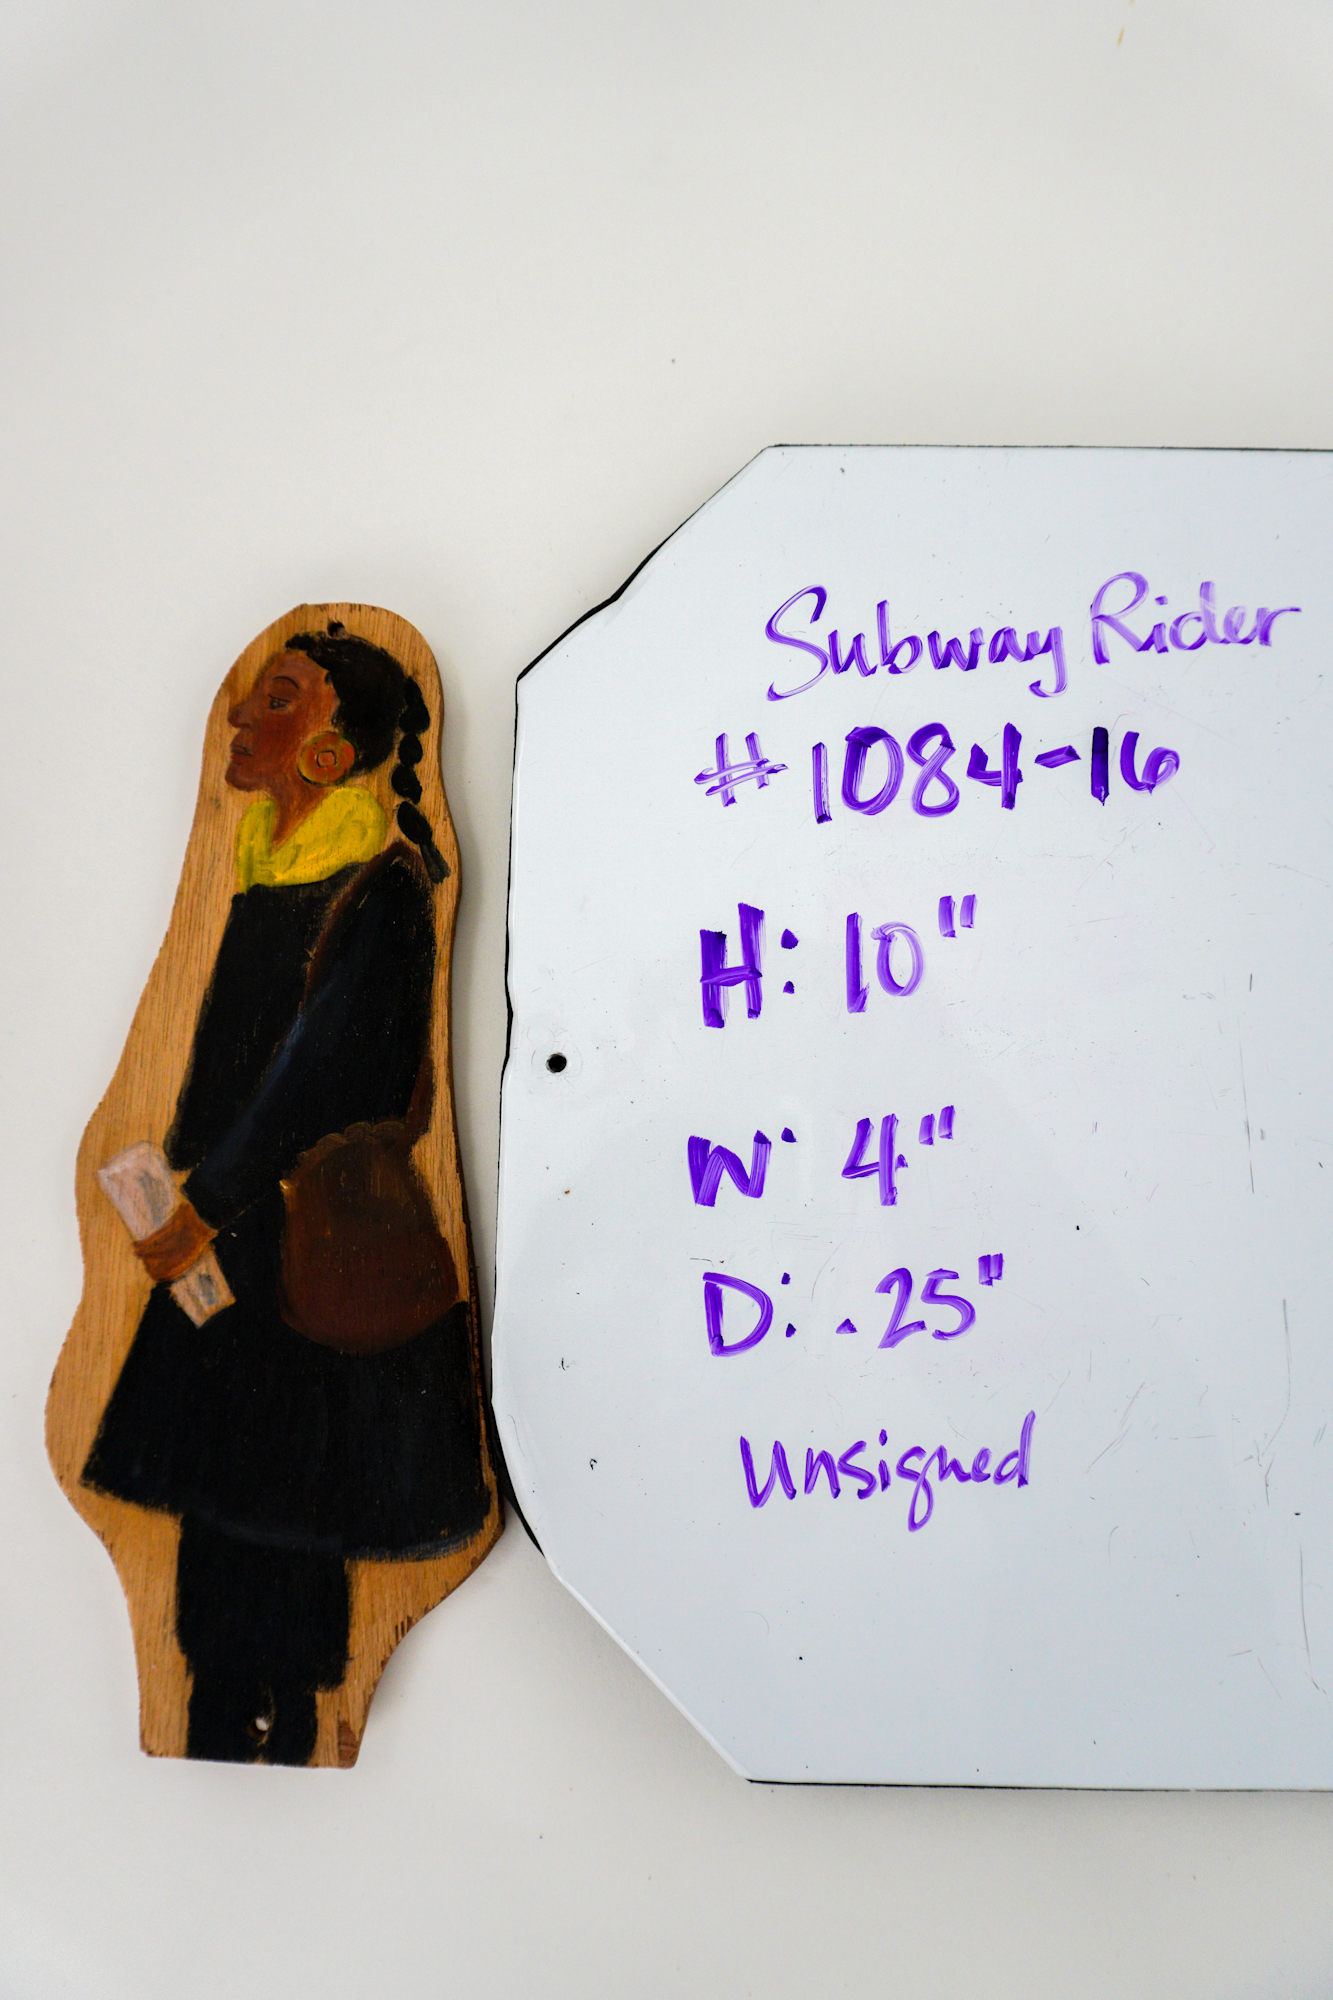 Subway Rider
#1084-16
H: 10"
W: 4"
D: .25"
Unsigned